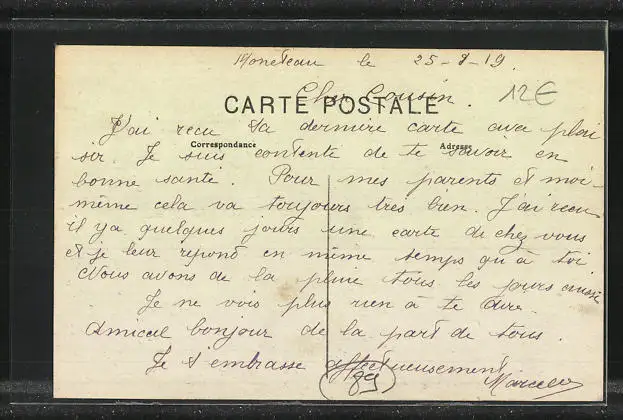 Moneteau le 25-8-19.
12€
Cher Cousin.
CARTE POSTALE
J'ai recu ta dernière carte avec plai
Correspondance
Adresse
sir. Je suis contente de te savoir en
bonne santé. Pour mes parents et moi-
même cela va toujours très bien. J'ai recu
il ya quelques jours une carte de chez vous
et je leur répond en même temps qu'à toi
Nous avons de la pluie tous les jours aussi
Je ne vois plus rien à te dire.
Amical bonjour de la part de tous.
Je t'embrasse affectueusement
(89)
Marcelle